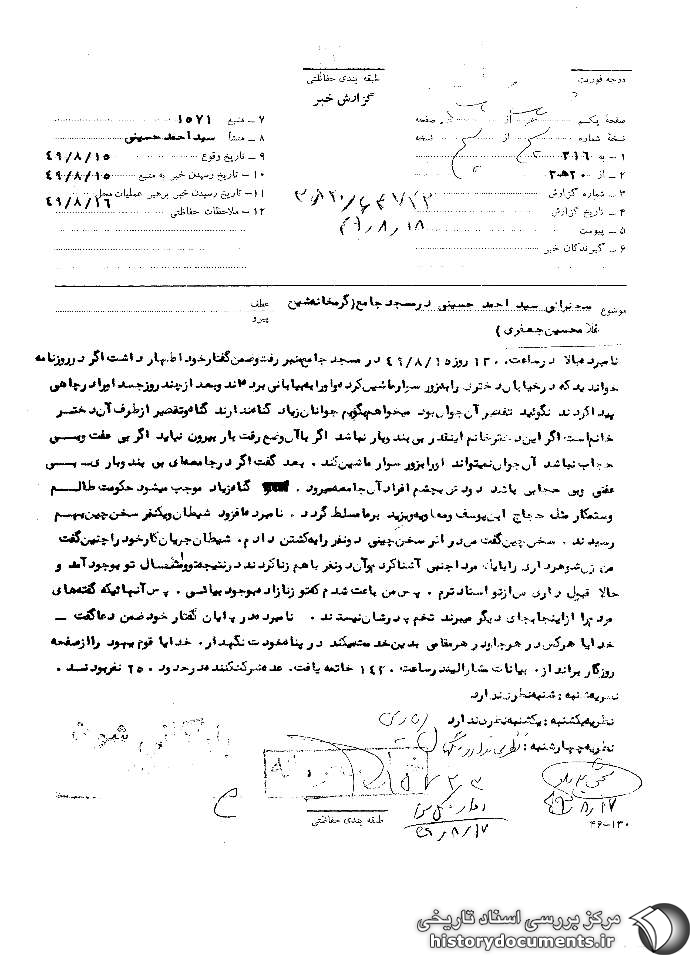 طبقه بندی حفاظتی
گزارش خبر
درجه فوریت
صفحه یکم از صفحه
نسخه شماره از نسخه
۱ – به ۳۱۶
۲ – از ۲۰ ه ۳
۳ – شماره گزارش
۴ – تاریخ گزارش ۴۹/۸/۱۸
۵ – پیوست
۶ – گیرندگان خبر
۷ – منبع ۱۵۷۱
۸ – منشأ سید احمد حسینی
۹ – تاریخ وقوع ۴۹/۸/۱۵
۱۰ – تاریخ رسیدن خبر به منبع ۴۹/۸/۱۵
۱۱ – تاریخ رسیدن خبر برهبر عملیات محل ۴۹/۸/۱۶
۱۲ – ملاحظات حفاظتی
موضوع سخنرانی سید احمد حسینی در مسجد جامع (گرمخانه شبستان
غلامحسین جعفری)
عطف
پیرو
نامبرده بالا در ساعت ۱۳۰۰ روز ۴۹/۸/۱۵ در مسجد جامع بمنبر رفت و ضمن گفتار خود اظهار داشت اگر در روزنامه
خواندید که در خیابان دختری را بزور سوار ماشین کرده و او را به بیابانی برده‌اند و بعد از چند روز جسد او را در چاهی
پیدا کردند نگوئید تقصیر آن جوان بود میخواهم بگویم جوانان زیاد گناه ندارند گناه و تقصیر از طرف آن دختر
خانم است اگر این دختر خانم اینقدر بی بند و بار نباشد اگر با آن وضع رقت بار بیرون نیاید اگر بی عفت و بی
حجاب نباشد آن جوان نمیتواند او را بزور سوار ماشین کند . بعد گفت اگر در جامعه‌ای بی بند و باری بی
عفتی و بی حجابی باشد دودش بچشم افراد آن جامعه میرود . گناه زیاد موجب میشود حکومت ظالم
و ستمکار مثل حجاج ابن یوسف و معاویه و یزید بر ما مسلط گردد . نامبرده افزود شیطان و یکنفر سخن چین بهم
رسیدند . سخن چین گفت من در اثر سخن چینی دو نفر را به کشتن دادم . شیطان جریان کار خود را چنین گفت
من زن شوهرداری را با یک مرد اجنبی آشنا کردم و آن دو نفر با هم زنا کردند در نتیجه نطفه‌ای مثل تو بوجود آمد و
حالا قبول داری من از تو استادترم . پس من باعث شدم که تو زنازاده بوجود بیائی . پس آنهائیکه گفته‌های
مردم را از اینجا بجای دیگر میبرند تخم پدرشان نیستند . نامبرده در پایان گفتار خود ضمن دعا گفت –
خدایا هر کس در هر جا و در هر مقامی بدین خدمت میکند در پناه خودت نگهدار . خدایا قوم یهود را از صفحه
روزگار برانداز . بیانات مشارالیه در ساعت ۱۴۲۰ خاتمه یافت . عده شرکت کننده در حدود ۲۵۰ نفر بودند .
نظریه شنبه : شنبه نظر ندارد
نظریه یکشنبه : یکشنبه نظر ندارد
نظریه چهارشنبه : نظری ندارد
بایگانی شود
۴۹/۸/۱۷
۴۹/۸/۱۷
۴۶–۱۳۰
طبقه بندی حفاظتی
مرکز بررسی اسناد تاریخی
historydocuments.ir